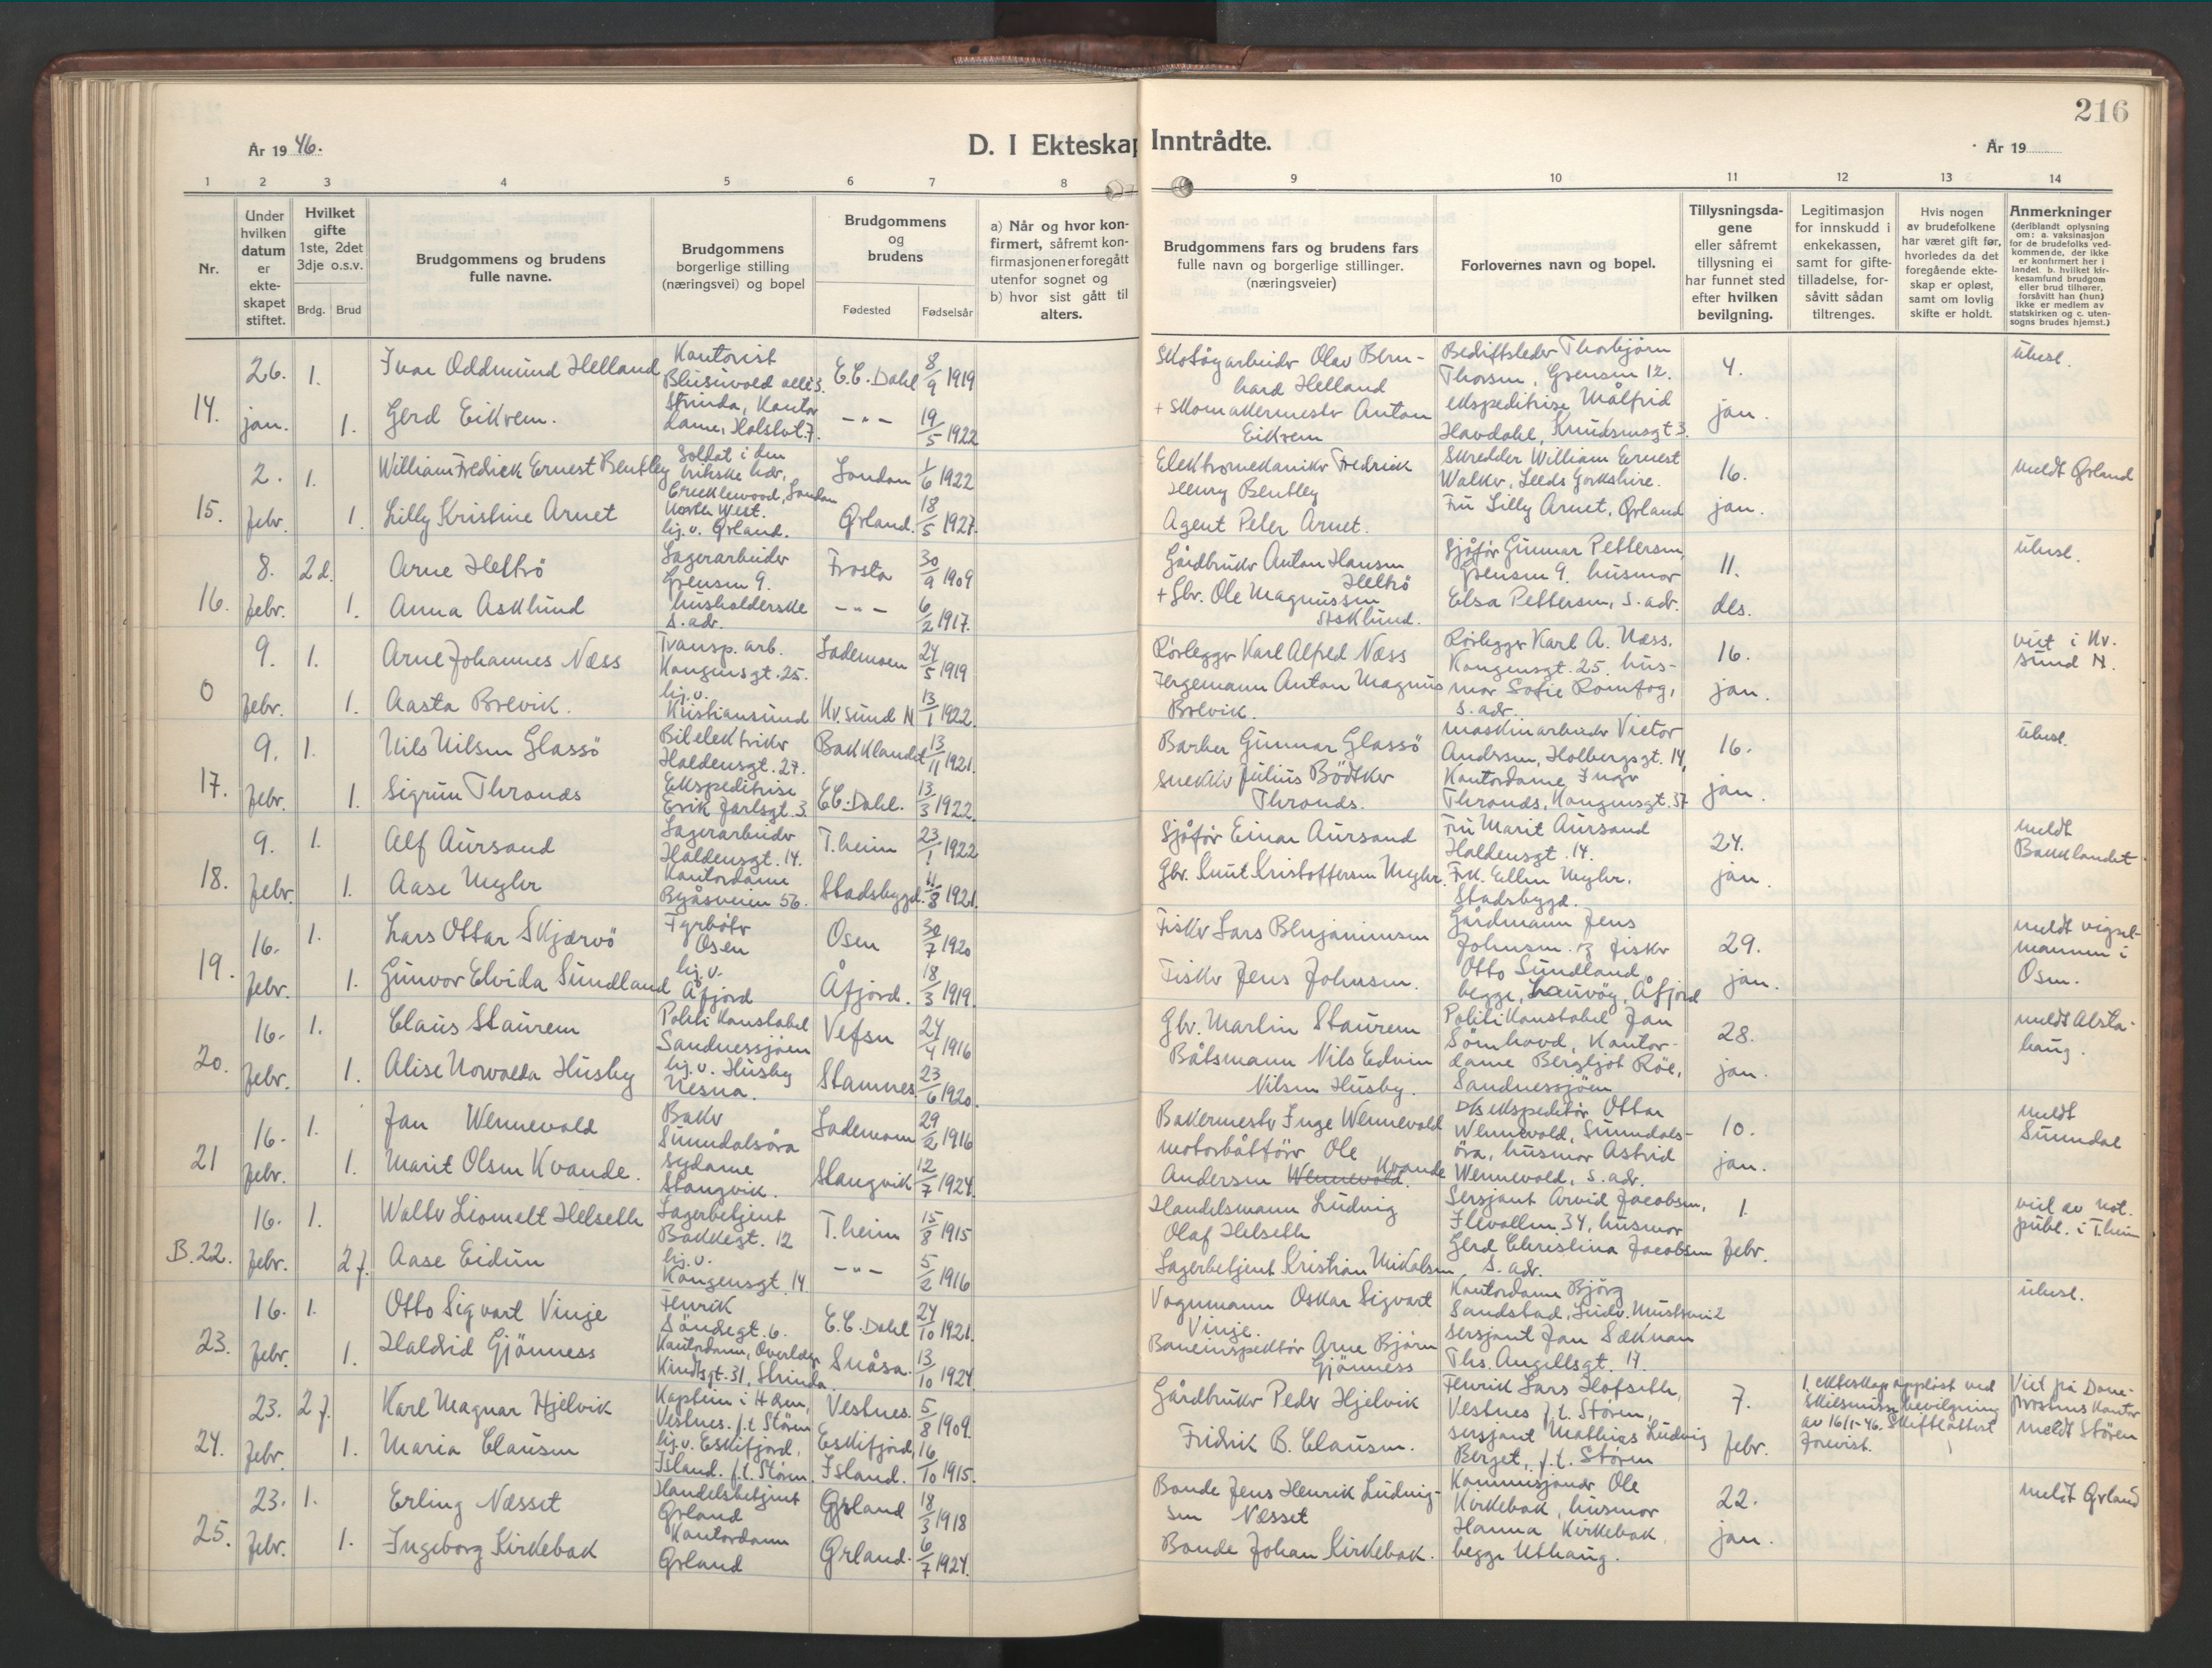 216
År 19 46.
D. I Ekteskap Inntrådte.
År 19
1 2 3 4 5 6 7 8 9 10 11 12 13 14
Nr.
Under
hvilken
datum
er
ekte-
skapet
stiftet.
Hvilket
gifte
1ste, 2det
3dje o.s.v.
Brdg. Brud
Brudgommens og brudens
fulle navne.
Brudgommens
borgerlige stilling
(næringsvei) og bopel
Brudgommens
og
brudens
Fødested Fødselsår
a) Når og hvor kon-
firmert, såfremt kon-
firmasjonen er foregått
utenfor sognet og
b) hvor sist gått til
alters.
Brudgommens fars og brudens fars
fulle navn og borgerlige stillinger.
(næringsveier)
Forlovernes navn og bopel.
Tillysningsda-
gene
eller såfremt
tillysning ei
har funnet sted
efter hvilken
bevilgning.
Legitimasjon
for innskudd i
enkekassen,
samt for gifte-
tilladelse, for-
såvitt sådan
tiltrenges.
Hvis nogen
av brudefolkene
har været gift før,
hvorledes da det
foregående ekte-
skap er opløst,
samt om lovlig
skifte er holdt.
Anmerkninger
(deriblandt oplysning
om: a. vaksinasjon
for de brudefolks ved-
kommende, der ikke
er konfirmert her i
landet. b. hvilket kir-
kesamfund brudgom
eller brud tilhører,
forsåvitt han (hun)
ikke er medlem av
statskirken og c. uten-
sogns brudes hjemst.)
14.
26.
jan.
1.
1.
Ivar Oddmund Helland
Gerd Eikrem.
Kontorist
Strinda, Kontor
dame,
E.C. Dahl 8/9 1919
- " - 19/5 1922
Skotøyarbeider Olav Bern-
hard Helland
+ Skomakermester Anton
Eikrem
Bedriftsleder Thorbjørn
ekspeditrise Målfrid
Havdahl,
4.
jan.
15.
2.
febr.
1.
1.
William Fredrick Ernest Bentley
Lilly Kristine Arnet
Soldat i den
britiske hær,
Cricklewood, London
North West.
hj.v. Ørland.
London 1/6 1922
Ørland. 18/5 1927.
Elektromekaniker Fredrick
Henry Bentley
Agent Peter Arnet.
Skredder William Ernest
Walker, Leeds Yorkshire.
Fru Lilly Arnet, Ørland
16.
jan.
meldt Ørland
16.
8.
febr.
2d.
1.
Arne Heltrö
Anna Asklund
Lagerarbeider
husholderske
s. adr.
Frosta 30/9 1909
- " - 6/2 1917.
Gårdbruker Anton Hansen
Heltrö
+ Gbr. Ole Magnussen
Asklund.
Sjåför Gunnar Pettersen,
husmor
Elsa Pettersen, s. adr.
11.
des.
0
9.
febr.
1.
1.
Arne Johannes Næss
Aasta Brevik.
Transp. arb.
Kongensgt. 25.
hj.v.
Kristiansund
Lademoen 24/5 1919
Kr.sund N 13/1 1922.
Rörlegger Karl Alfred Næss
Fergemann Anton Magnus
Brevik.
Rörlegger Karl A. Næss,
Kongensgt. 25. hus-
mor Sofie Romfog,
s. adr.
16.
jan.
viet i Kr.
sund N.
17.
9.
febr.
1.
1.
Nils Nilsen Glassö
Sigrun Thronds
Bilelektriker
Haldensgt. 27.
Ekspeditrise
Erik Jarlsgt. 3.
Bakklandet 13/11 1921.
E.C. Dahl. 13/3 1922.
Barber Gunnar Glassö
Snekker Julius Bödtker
Thronds.
Maskinarbeider Victor
Andersen, Holbergsgt. 14,
Kontordame Inger
Thronds, Kongensgt. 37
16.
jan.
18.
9.
febr.
1.
1.
Alf Aursand
Aase Myhr
Lagerarbeider
Haldensgt. 14.
Kontordame
Byåsveien 56.
T.heim 23/1 1922
Stadsbygd. 11/8 1921.
Sjåför Einar Aursand
Gbr. Knut Kristoffersen Myhr.
Fru Marit Aursand
Haldensgt. 14.
Frk. Ellen Myhr,
Stadsbygd.
24.
jan.
meldt
Bakklandet
19.
16.
febr.
1.
1.
Lars Ottar Skjærvö
Gunvor Elvida Sundland
Fyrböter
Osen
hj.v.
Åfjord
Osen 30/7 1920
Åfjord. 18/3 1919.
Fisker Lars Benjaminsen
Fisker Jens Johnsen.
Gårdmann Jens
Johnsen og fisker
Otto Sundland,
begge, Lauvöy, Åfjord
29.
jan.
meldt vigsel-
mannen i
Osen.
20.
16.
febr.
1.
1.
Claus Staurem
Alise Norvalda Husby
Politikonstabel
Sandnessjöen
hj.v. Husby
Nesna.
Vefsn 24/4 1916
Stamnes. 23/6 1920.
Gbr. Martin Staurem
Båtsmann Nils Edvin
Nilsen Husby.
Politikonstabel Jan
Sömhovd, Kontor-
dame Bergljot Röe,
Sandnessjöen
28.
jan.
meldt Alsta-
haug.
21
16.
febr.
1.
1.
Jan Wennevold
Marit Olsen Kvande.
Baker
Sunndalsöra
sydame
Stangvik.
Lademoen 29/2 1916
Stangvik 12/7 1924.
Bakermester Inge Wennevold
motorbåtförer Ole
Andersen Wennevold. Kvande
D/s ekspeditör Ottar
Wennevold, Sunndals-
öra, husmor Astrid
Wennevold, s. adr.
10.
jan.
meldt
Sunndal
B. 22.
16.
febr.
1.
2 f.
Walter Liomelt Helseth
Aase Eidum
Lagerbetjent
Bakkegt. 12
hj.v.
Kongensgt. 14
T.heim 15/8 1915
- " - 5/2 1916
Handelsmann Ludvig
Olaf Helseth
Lagerbetjent Kristian Nikolsen
Sersjant Arvid Jacobsen,
Ilevollen 34, husmor
Gerd Christina Jacobsen
s. adr.
1.
febr.
viet av not.
publ. i T.heim
23.
16.
febr.
1.
1.
Otto Sigvart Vinje
Haldrid Gjönness
Fenrik
Söndregt. 6.
Kontordame,
Strinda
E.C. Dahl 24/10 1921.
Snåsa. 13/10 1924
Vognmann Oskar Sigvart
Vinje.
Baneinspektör Arne Björn
Gjönness
Kontordame Björg
Sandstad,
sersjant Jan Saknan
Ths. Angellsgt. 14.
24.
23.
febr.
2 f.
1.
Karl Magnar Hjelvik
Maria Clausen
Kaptein i Hæren,
Vestnes. f.t. Støren
hj.v. Eskifjord,
Island. f.t. Støren.
Vestnes. 5/8 1909.
Eskifjord, 16/10 1915.
Island.
Gårdbruker Peder Hjelvik
Fridrik B. Clausen.
Fenrik Lars Hofseth,
Vestnes f.t. Støren,
sersjant Mathias Ludvig
Berget, f.t. Støren
7.
febr.
1. ekteskap oppløst ved
skilsmissebevilgning
av 16/1-46. Skifteattest
forevist.
Viet på Dom-
prostens kontor
meldt Støren
25.
23.
febr.
1.
1.
Erling Næsset
Ingeborg Kirkebak
Handelsbetjent
Ørland
Kontordame
Ørland
Ørland 18/3 1918
Ørland. 6/7 1924.
Bonde Jens Henrik Ludvig-
sen Næsset
Bonde Johan Kirkebak.
Kommisjonær Ole
Kirkebak, husmor
Hanna Kirkebak
begge Uthaug.
22.
jan.
meldt Ørland